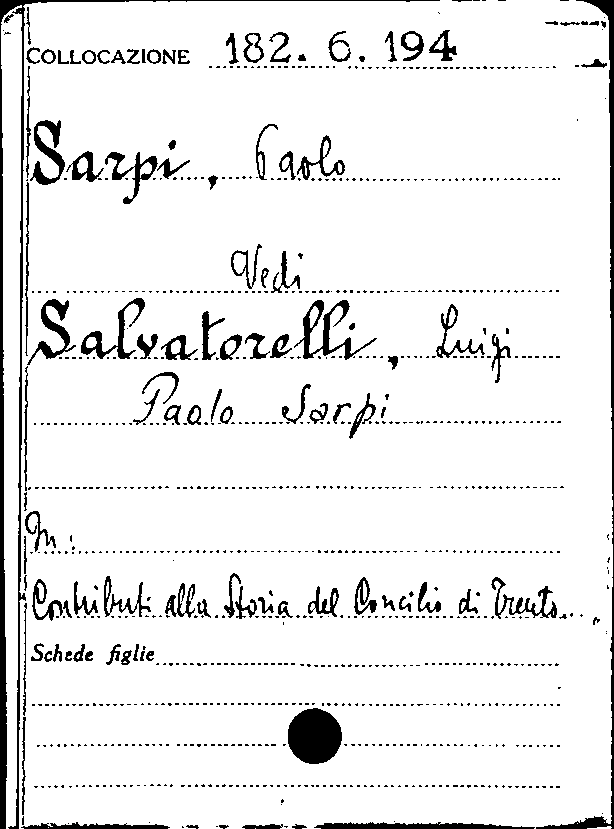 COLLOCAZIONE 182. 6. 194
Sarpi, Paolo
Vedi
Salvatorelli, Luigi
Paolo Sarpi
In:
Contributi alla Storia del Concilio di Trento...,
Schede figlie